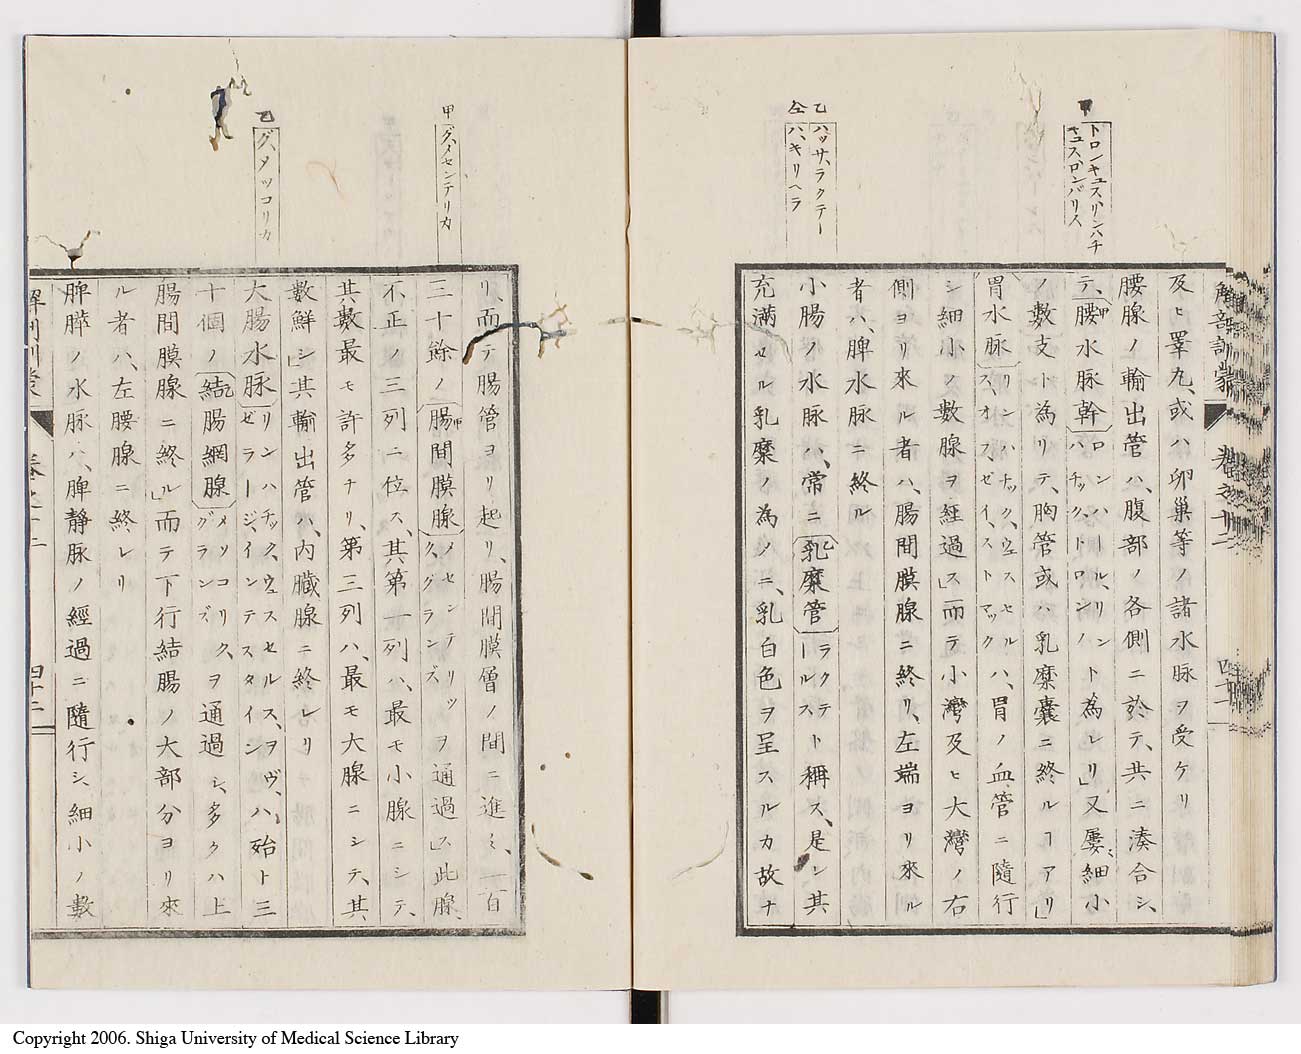 甲
トロンキュス、リンハチ
キュス、ロンバリス
乙 ハッサ、ラクテー
仝 ハ、キリヘラ
解剖訓蒙
巻之十二
四十一
及ヒ睪九、或ハ卵巣等ノ諸水脉ヲ受ケリ
腰腺ノ輸出管ハ、腹部ノ各側ニ於テ、共ニ湊合シ、
テ、腰水脉幹ロンハール、リンハチック、トロンハト為レリ」又屡〻細小
ノ數支ト為リテ、胸管或ハ乳糜嚢ニ終ルヿアリ」
胃水脉リンハチック、ウェスセルス、オフ、ゼイ、ストマックハ、胃ノ血管ニ隨行
シ細小ノ數腺ヲ經過ス」而テ小灣及ヒ大灣ノ右
側ヨリ來ル者ハ、腸間膜腺ニ終リ、左端ヨリ來ル
者ハ、脾水脉ニ終ル
小腸ノ水脉ハ、常ニ乳糜管ラクテールスト稱ス、是レ其
充滿セル乳糜ノ為ノニ、乳白色ヲ呈スルカ故ナ
甲 グ、メセンテリカ
乙 グ、メソコリカ
リ、而テ腸管ヨリ起リ、腸間膜層ノ間ニ進ミ、一百
三十餘ノ腸間膜腺メセンテリック、グランズヲ通過ス」此腺、
不正ノ三列ニ位ス、其第一列ハ、最モ小腺ニシテ、
其數最モ許多ナリ、第三列ハ、最モ大腺ニシテ、其
數鮮シ」其輸出管ハ、内臓腺ニ終レリ
大腸水脉リンハチック、ウェスセルス、ヲヴ、ゼラージ、インテスタインハ、殆ト三
十個ノ結腸網腺メソコリク、グランズヲ通過シ、多クハ上
腸間膜腺ニ終ル」而テ下行結腸ノ大部分ヨリ來
ル者ハ、左腰腺ニ終レリ
脾膵ノ水脉ハ、脾静脉ノ經過ニ隨行シ、細小ノ數
解剖訓蒙
巻之十二
四十二
Copyright 2006. Shiga University of Medical Science Library